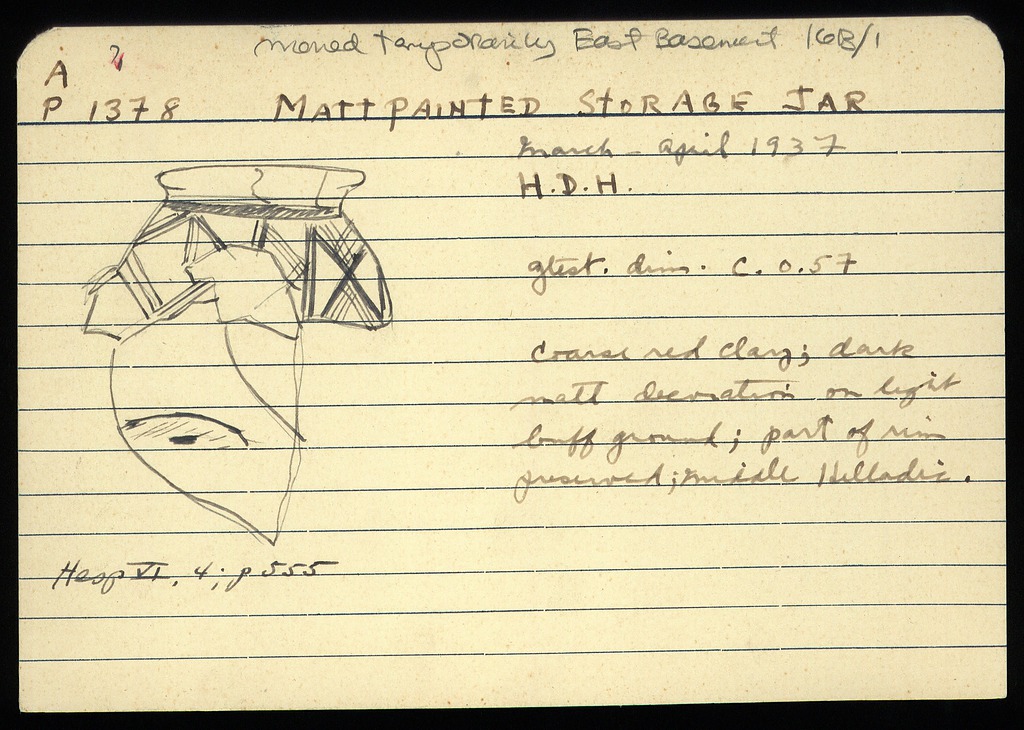 moved temporarily East Basement 16B/1
A ?
P 1378 MATTPAINTED STORAGE JAR
March - April 1937
H.D.H.
gtest. dim. c. 0.57
coarse red clay; dark
matt decoration on light
buff ground; part of rim
preserved; Middle Helladic.
Hesp VI, 4; p 555